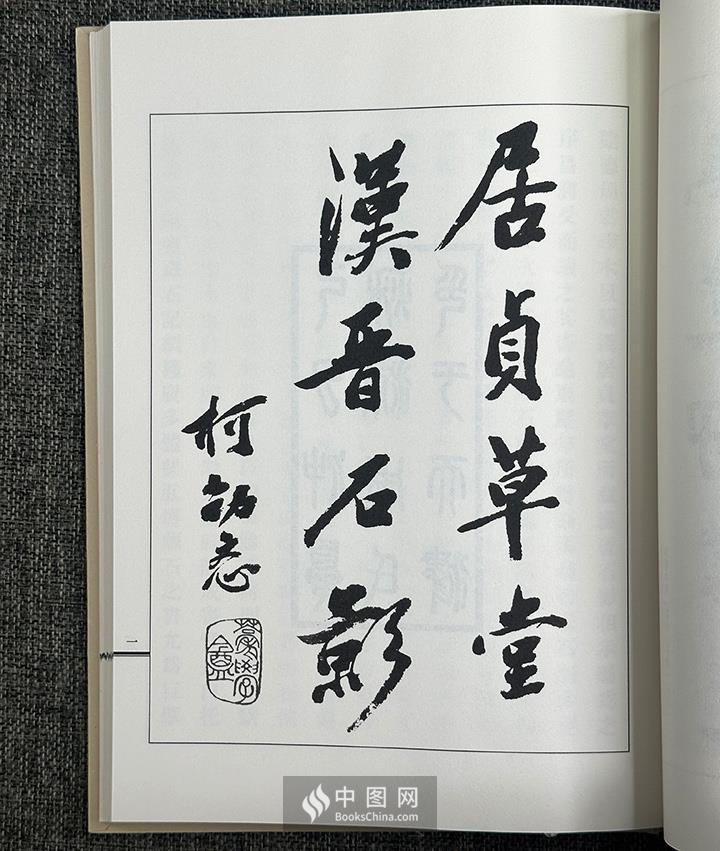 居貞草堂
漢晉石影
柯劭忞
一
中图网
BooksChina.com